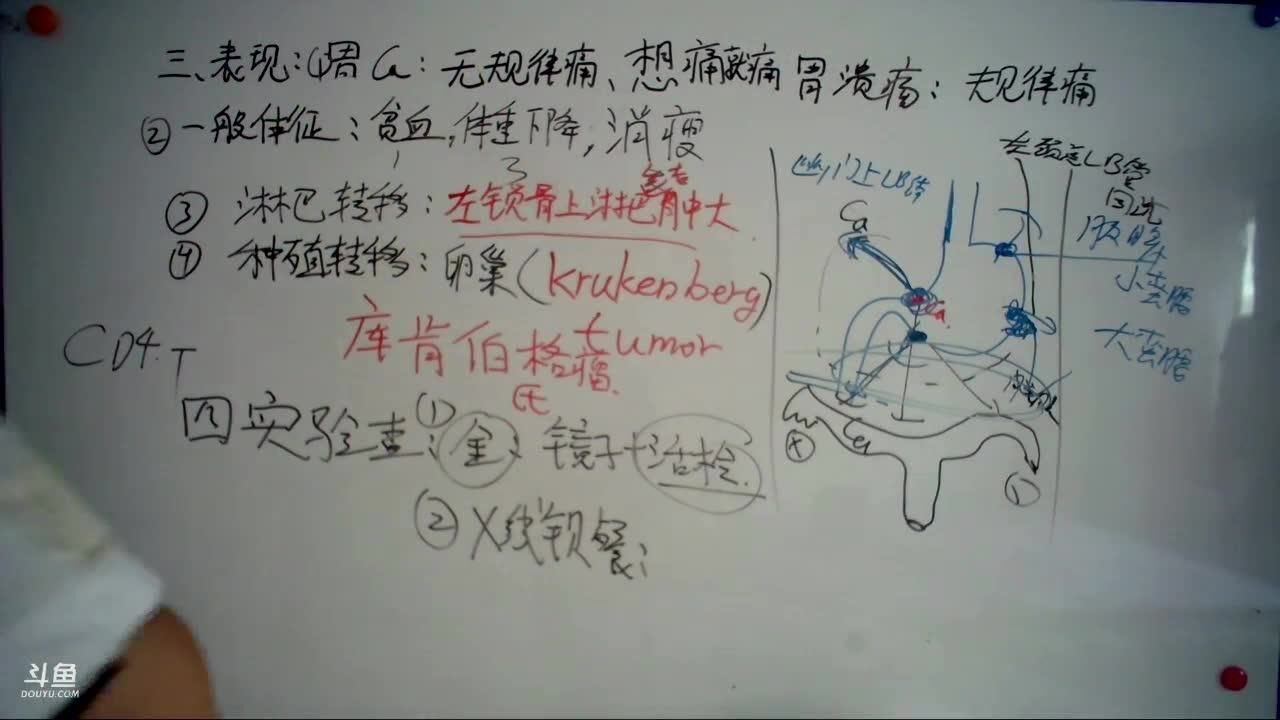 三、表现:①胃Ca:无规律痛、想痛就痛 胃溃疡:规律痛
②一般体征:贫血,体重下降,消瘦
③ 淋巴转移:左锁骨上淋巴肿大
④ 种植转移:卵巢(Krukenberg)
库肯伯格瘤 tumor
氏
CD4.T
四 实验查:①金:镜子+活检.
②X线钡餐;
幽门上LB管
Ca
Ca
左颈总LB管
回流
小
大
斗鱼
DOUYU.COM